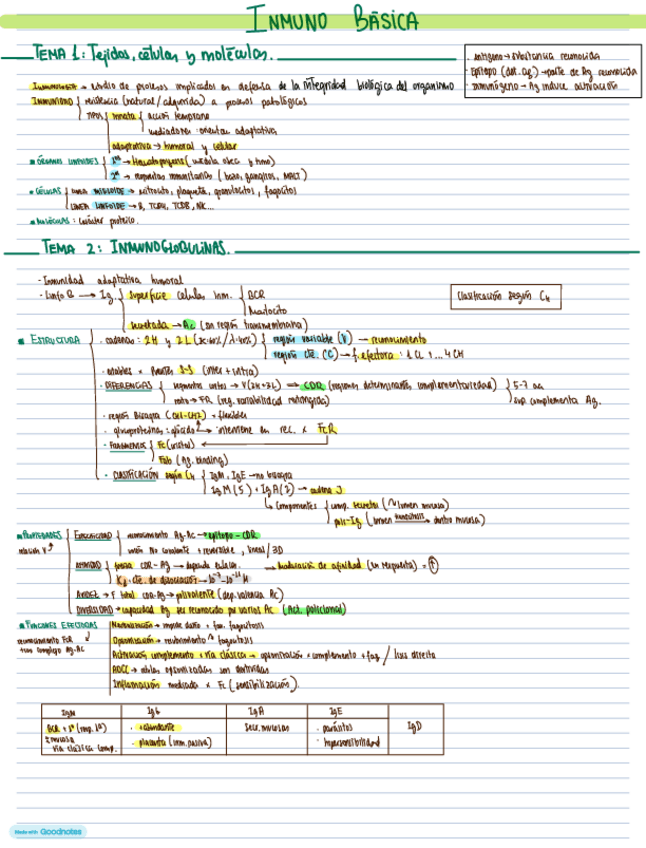 INMUNO BÁSICA
TEMA 1: Tejidos, células y moléculas.
· Antígeno → sustancia reconocida
· Epítopo (det. ag.) → parte de Ag reconocida
· Inmunógeno → Ag induce activación
INMUNOLOGÍA → estudio de procesos implicados en defensa de la integridad biológica del organismo
INMUNIDAD resistencia (natural / adquirida) a procesos patológicos
TIPOS innata acción temprana
mediadores: orientar adaptativa
adaptativa → humoral y celular
ÓRGANOS LINFOIDES 1os → Hematopoyesis (médula ósea y timo)
2os → respuestas inmunitarias (bazo, ganglios, MALT)
CÉLULAS LINEA MIELOIDE → eritrocito, plaqueta, granulocitos, fagocitos
LINEA LINFOIDE → B, TCD4, TCD8, NK...
MOLÉCULAS: carácter proteico.
TEMA 2: INMUNOGLOBULINAS.
· Inmunidad adaptativa humoral
· Linfo B → Ig. superficie células inm. BCR
Mastocito
secretada → Ac (sin región transmembrana)
Clasificación según CH
ESTRUCTURA · cadenas: 2H y 2L (κ:60% / λ:40%) región variable (V) → reconocimiento
región cte. (C) → f. efectora: 1 CL + ...4 CH
· estables x Puentes S-S (inter + intra)
· DIFERENCIAS segmentos cortos → V(3H+3L) → CDR (regiones determinantes complementariedad) 5-7 aa
resto → FR (reg. variabilidad restringida) sup complementa Ag.
· región Bisagra (CH1-CH2) = flexibles
· glucoproteínas: glúcido → interviene en rec. x FcR
· FRAGMENTOS Fc (cristal)
Fab (Ag. binding)
· CLASIFICACIÓN según CH IgM, IgE → no bisagra
IgM (5) + IgA (2) → cadena J
Componentes comp. secretor (lumen mucosa)
poli-Ig (lumen transcitosis dentro mucosa)
PROPIEDADES ESPECIFICIDAD reconocimiento Ag-Ac → epítopo - CDR
relación V unión No covalente + reversible, lineal / 3D
AFINIDAD fuerza CDR-Ag → depende enlaces. → Maduración de afinidad (en respuesta) = ↑
Kd: cte. de disociación → 10⁻⁷ - 10⁻¹¹ M
AVIDEZ → F total con. Ag → polivalente (dep. valencia Ac)
DIVERSIDAD → capacidad Ag ser reconocido por varios Ac (Act. policlonal)
FUNCIONES EFECTORAS Neutralización → impide daño + fav. fagocitosis
reconocimiento FcR Opsonización → recubrimiento ↑ fagocitosis
tras complejo Ag-Ac Activación complemento x vía clásica → opsonización x complemento + fag / lisis directa
ADCC → células opsonizadas son destruidas
Inflamación mediada x Fc (sensibilización).
IgM IgG IgA IgE IgD
BCR + 1ª (resp. 1ª) · +abundante Secr. mucosas · parásitos
· placenta (inm. pasiva) · hipersensibilidad
vía clásica comp.
Made with Goodnotes